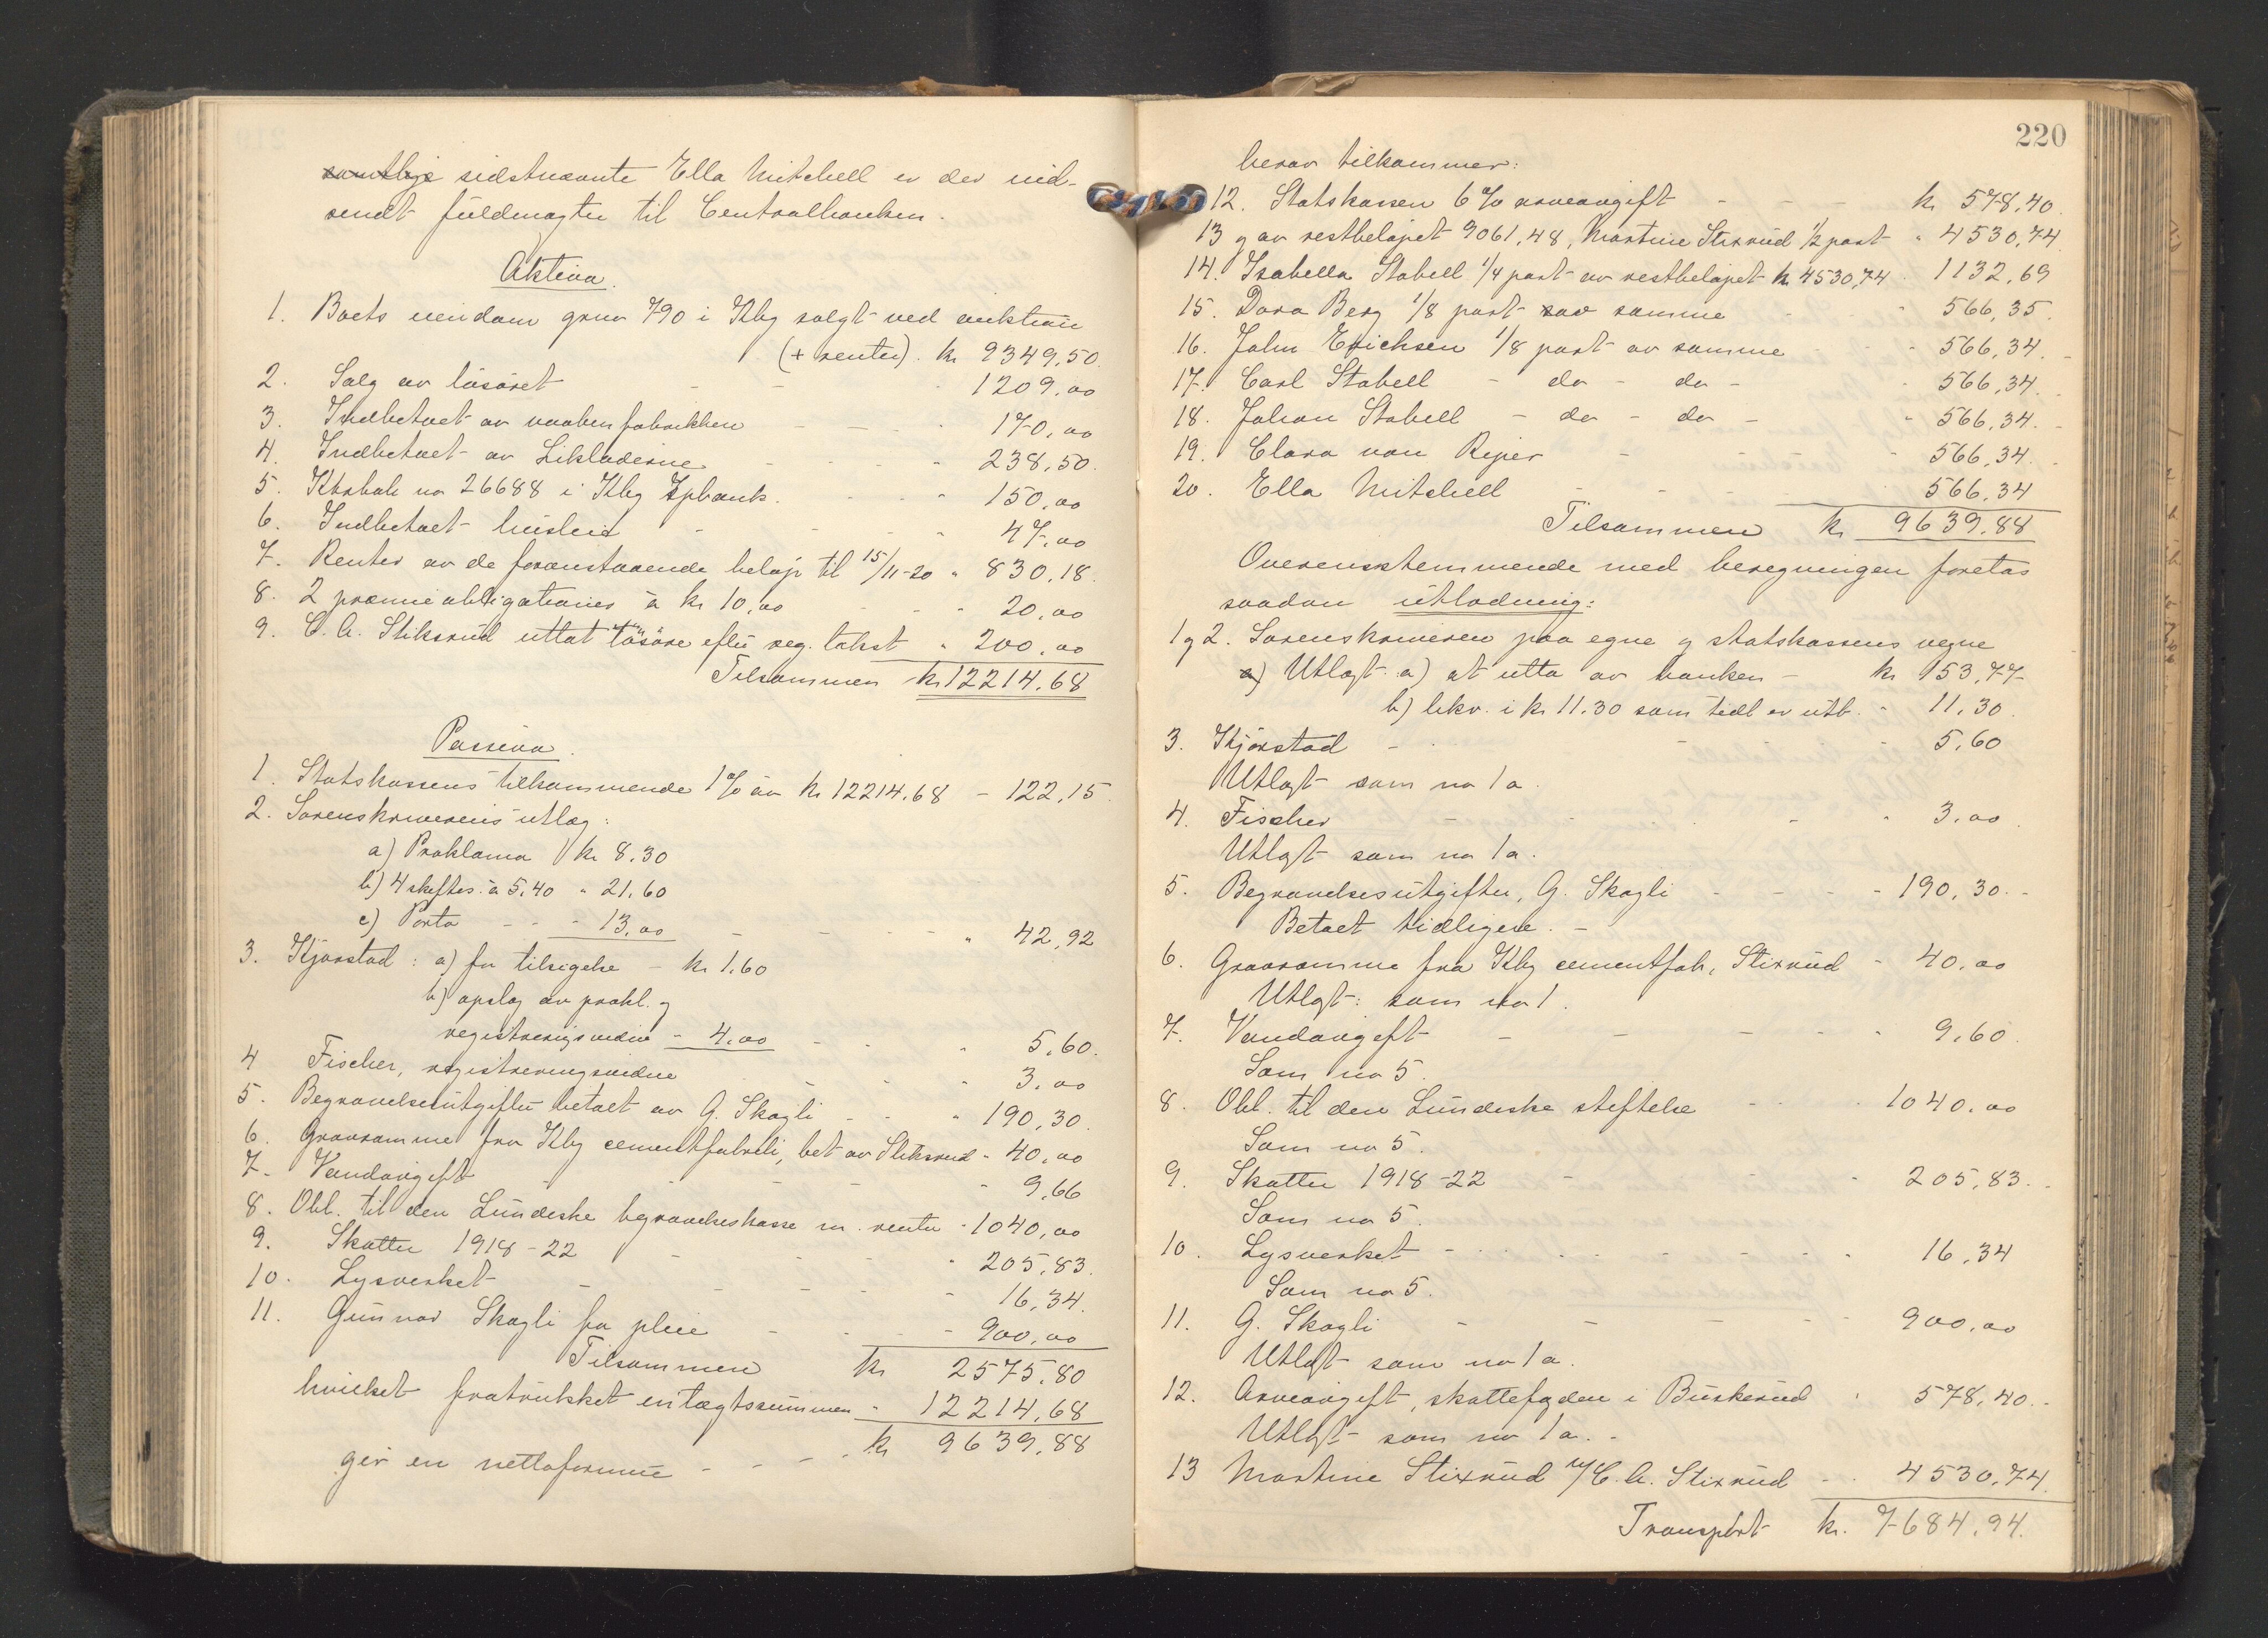 samtlige sidstnævnte Ella Mitchell er der ind-
sendt fuldmagter til Centralbanken.
Aktiva.
1. Boets eiendom grnr 790 i Kbg solgt ved auktion
(+ renter). kr 9349,50
2. Salg av løsøret - - 1209,00
3. Indbetalt av vaabenfabrikken - - - 170,00
4. Indbetalt av Likladerne - - - " 238,50.
5. Kbrbok no 26688 i Kbg Spbank. - - " 150,00
6. Indbetalt husleie - - - " 47,00
7. Renter av de foranstaaende beløp til 15/11-20 " 830,18.
8. 2 præmieobligationer à kr 10,00 - - " 20,00
9. C. A. Stiksrud uttat løsøre efter reg. takst " 200,00
Tilsammen kr 12214,68
Passiva.
1. Statskassens tilkommende 1% av kr 12214,68 - 122,15.
2. Sorenskriverens utlæg:
a) Proklama kr 8.30
b) 4 skiftes. à 5,40 " 21,60
c) Porto - - - 13,00 - - - " 42,92
3. Kjørstad: a) for tilsigelse - kr 1.60
b) opslag av prokl. og
registreringsvidne - 4,00 - - " 5,60.
4 Fischer, registreringsvidne - - " 3,00
5. Begravelsesutgifter betalt av G. Skogli - - " 190,30.
6. Gravramme fra Kbg cementfabrik, bet av Stiksrud " 40,00
7. Vandavgift - - - - " 9,66
8. Obl. til den Lundeske begravelseskasse m. renter " 1040,00
9. Skatter 1918-22 - - - " 205,83.
10. Lysverket - - - - 16,34.
11. Gunnar Skogli for pleie - - - - 900,00
Tilsammen kr 2575,80
hvilket fratrukket indtægtssummen " 12214,68
gir en nettoformue - - - - kr 9639,88
220
herav tilkommer:
12. Statskassen 6% arveavgift - - - kr 578,40.
13 og av restbeløpet 9061,48, Martine Stixrud 1/2 part " 4530,74.
14. Isabella Stabell 1/4 part av restbeløpet kr 4530,74 . 1132,69
15. Dora Berg 1/8 part av samme - " 566,35.
16. John Erichsen 1/8 part av samme - - 566,34.
17. Carl Stabell - do - do - " 566,34.
18. Johan Stabell - do - do - " 566,34.
19. Clara van Riper - - " 566,34.
20. Ella Mitchell - - - 566,34
Tilsammen kr 9639,88
Overensstemmende med beregningen foretas
saadan utlodning:
1 og 2. Sorenskriveren paa egne og statskassens vegne
Utlagt: a) at utta av banken - kr 153,77
b) bkv. i kr 11.30 som tidl er utb. " 11,30
3. Kjørstad - - - " 5,60
Utlagt som no 1a.
4. Fischer - - - " 3,00
Utlagt som no 1a.
5. Begravelsesutgifter, G. Skogli - - - - 190,30.-
Betalt tidligere. -
6. Gravramme fra Kbg cementfab, Stixrud " 40,00
Utlagt: som no 1.
7. Vandavgift - - - - " 9,60
Som no 5.
8. Obl. til den Lundeske stiftelse - - - 1040,00
Som no 5.
9. Skatter 1918-22 - - 205,83.-
Som no 5.
10. Lysverket - - - - - - - 16,34
Som no 5.
11. G. Skogli - - - - 900,00
Utlagt som no 1a.
12. Arveavgift, skattefogden i Buskerud " 578,40.-
Utlagt som no 1a. -
13 Martine Stixrud v/ C. A. Stixrud - - 4530,74.
Transport kr. 7684,94.